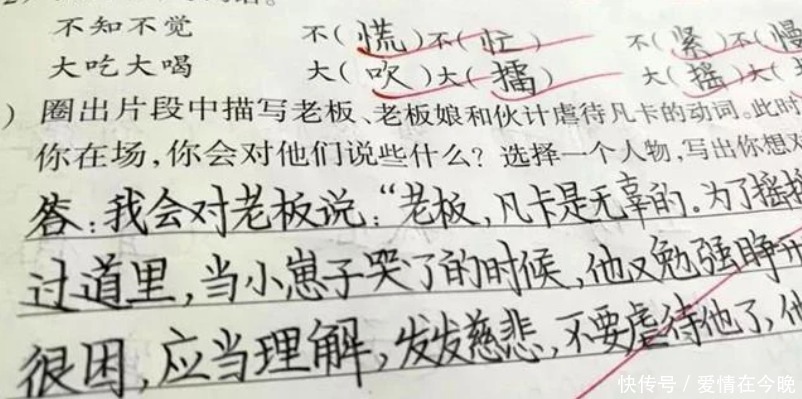 不知不觉 不(慌)不(忙) 不(紧)不(慢
大吃大喝 大(吹)大(擂) 大(摇)大(
)圈出片段中描写老板、老板娘和伙计虐待凡卡的动词。此时
你在场,你会对他们说些什么?选择一个人物,写出你想对
答:我会对老板说:“老板,凡卡是无辜的。为了摇摇
过道里,当小崽子哭了的时候,他又勉强睁开
很困,应当理解,发发慈悲,不要虐待他了,他
快传号/爱情在今晚